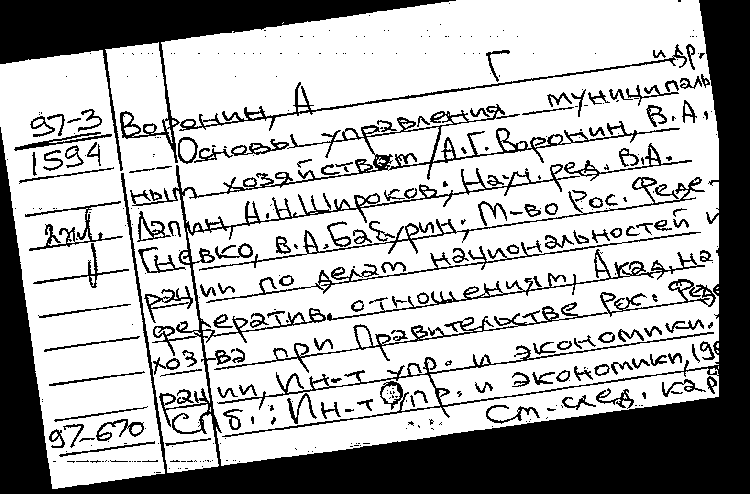 Г и др.
97-3 Воронин, А
1594 Основы управления муниципаль
ным хозяйством / А.Г. Воронин, В.А.
Лапин, А.Н. Широков; Науч. ред. В.А.
Гневко, В.А. Бабурин; М-во Рос. Феде-
рации по делам национальностей и
федератив. отношениям, Акад. на
хоз-ва при Правительстве Рос. Феде
рации, Ин-т упр. и экономики.
СПб.: Ин-т упр. и экономики, 199
97-670 См. след. кар